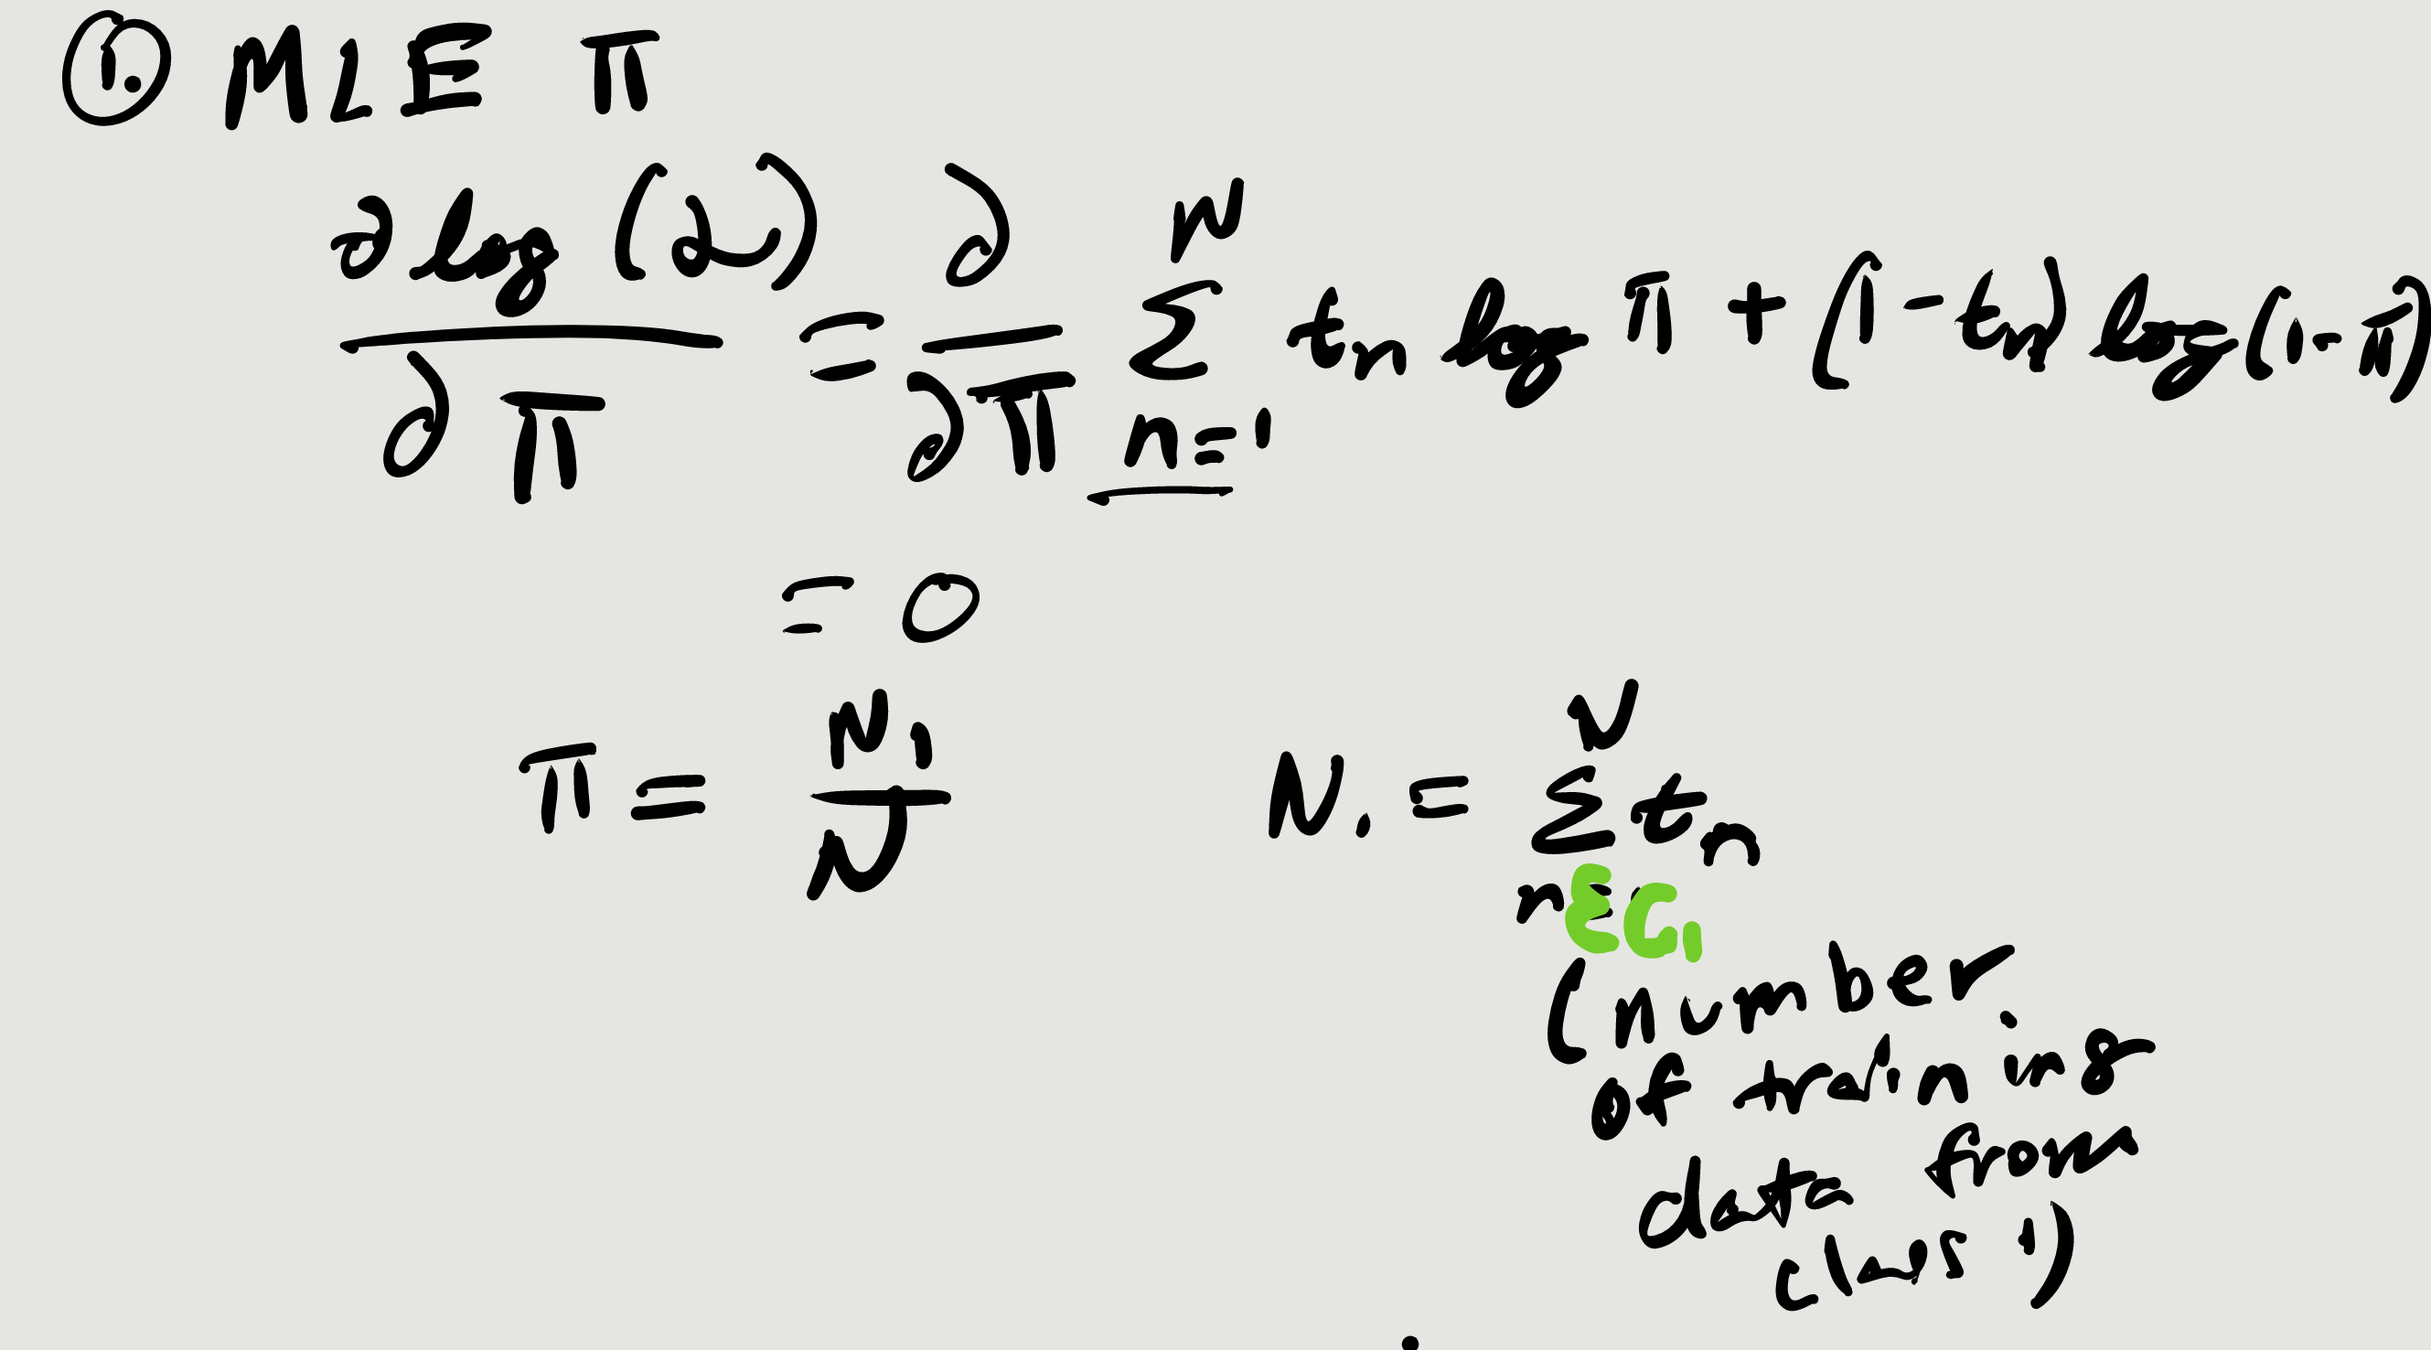 1. MLE π
∂ log (ℒ) / ∂π = ∂/∂π Σ_{n=1}^{N} t_n log π + (1 - t_n) log (1 - π)
= 0
π = N_1 / N
N_1 = Σ_{n ∈ C_1}^{N} t_n
(number
of training
data from
class 1)